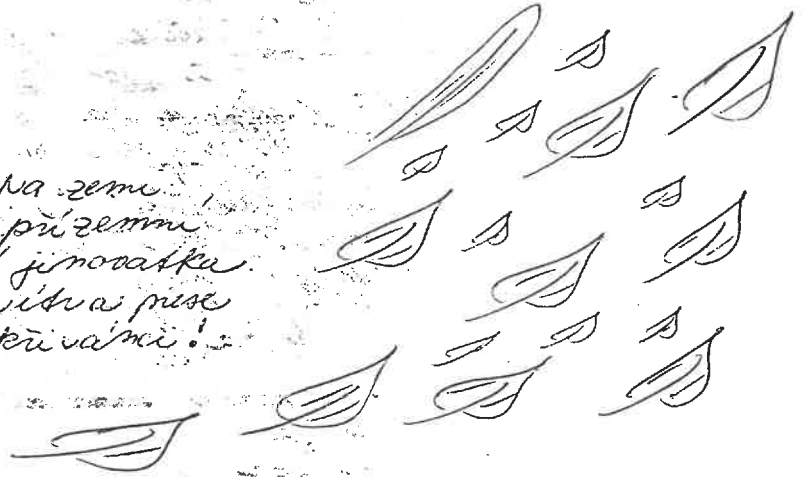 Na zemi
přízemní
jinovatka
jitra píše
křivánci!